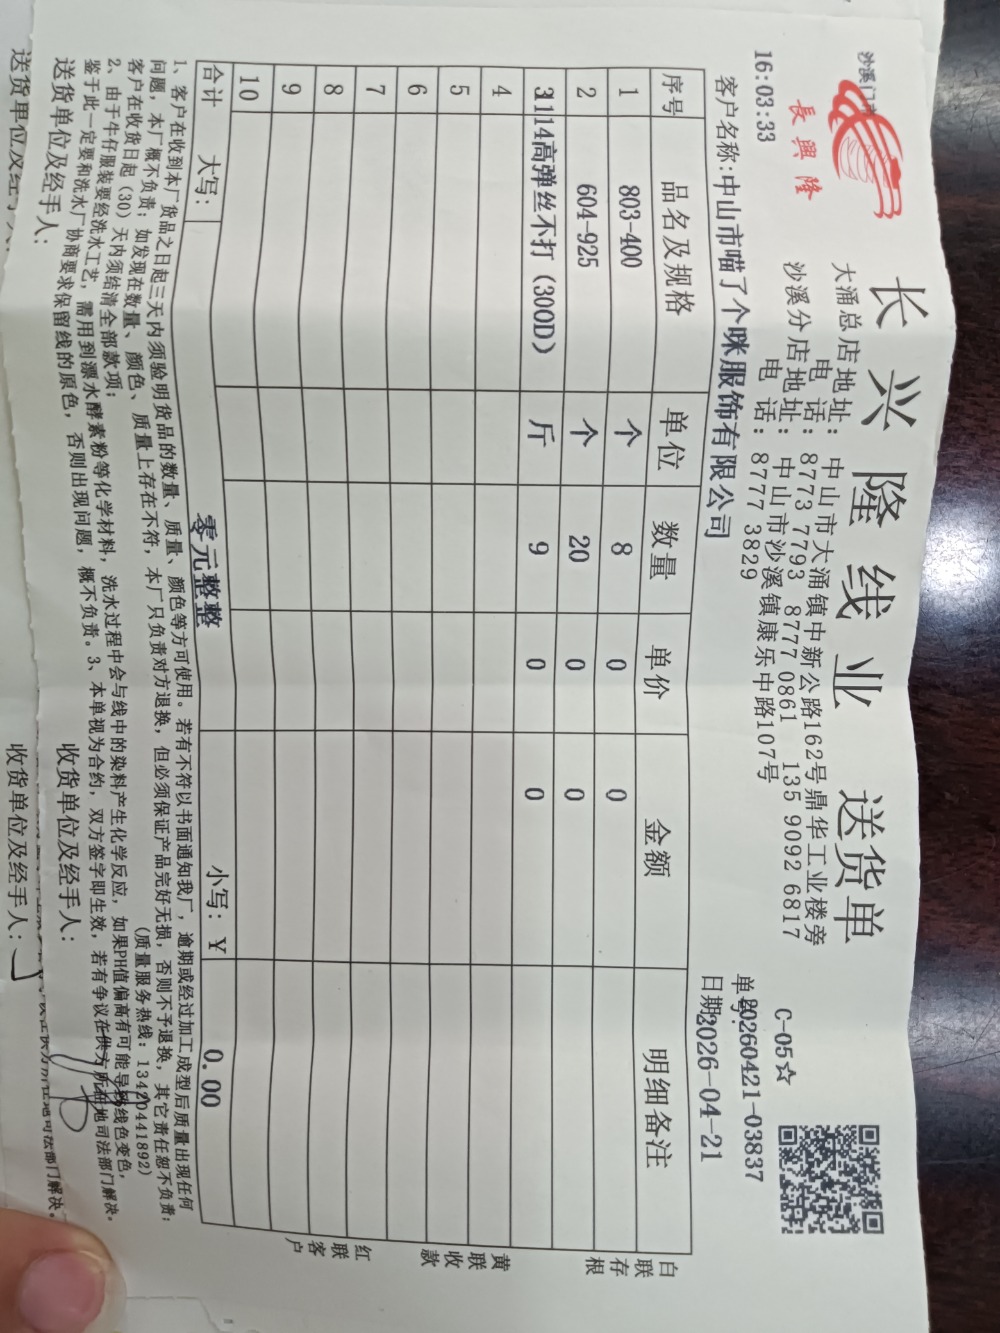 沙溪门市
長興隆
长兴隆线业 送货单
大涌总店地址：中山市大涌镇中新公路162号鼎华工业楼旁
电话：8773 7793 8777 0861 135 9092 6817
沙溪分店地址：中山市沙溪镇康乐中路107号
电话：8777 3829
C-05☆
16:03:33
单号：20260421-03837
客户名称：中山市喵了个咪服饰有限公司
日期2026-04-21
序号 品名及规格 单位 数量 单价 金额 明细备注
1 803-400 个 8 0 0
2 604-925 个 20 0 0
3 1114高弹丝不打（300D） 斤 9 0 0
4
5
6
7
8
9
10
合计 大写： 零元整整 小写：￥ 0.00
白联存根
黄联收款
红联客户
1、客户在收到本厂货品之日起三天内须验明货品的数量、质量、颜色等方可使用。若有不符以书面通知我厂，逾期或经过加工成型后质量出现任何
问题，本厂概不负责；如发现在数量、颜色、质量上存在不符，本厂只负责对方退换，但必须保证产品完好无损，否则不予退换，其它责任恕不负责；
客户在收货日起（30）天内须结清全部款项； （质量服务热线：13420441892）
2、由于牛仔服装要经洗水工艺，需用到漂水酵素粉等化学材料，洗水过程中会与线中的染料产生化学反应，如果PH值偏高有可能导致线色变色，
鉴于此一定要和洗水厂协商要求保留线的原色，否则出现问题，概不负责。3、本单视为合约，双方签字即生效，若有争议在供方所在地司法部门解决。
送货单位及经手人： 收货单位及经手人：
送货单位及经手人： 收货单位及经手人：